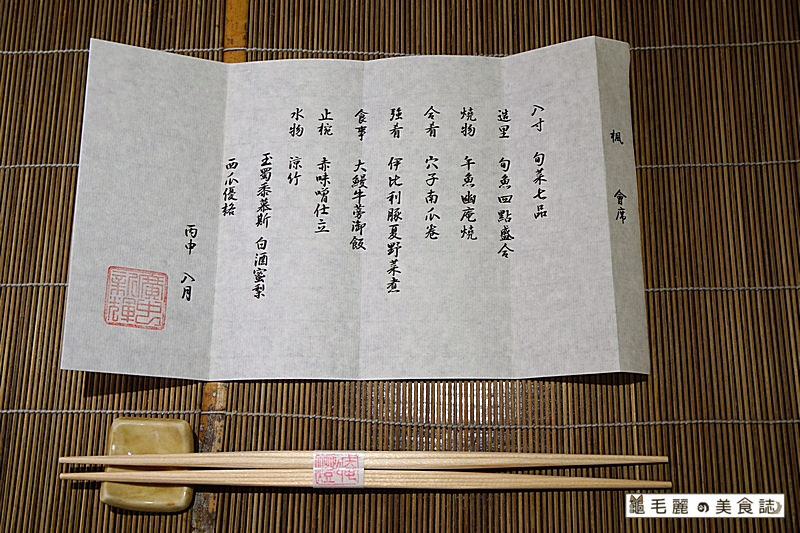 楓 會席
八寸 旬菜七品
造里 旬魚四點盛合
燒物 午魚幽庵燒
合肴 穴子南瓜卷
強肴 伊比利豚夏野菜煮
食事 大鰻牛蒡御飯
止椀 赤味噌仕立
水物 涼竹
玉蜀黍慕斯 白酒蜜梨
西瓜優格
丙申 八月
毛麗の美食誌